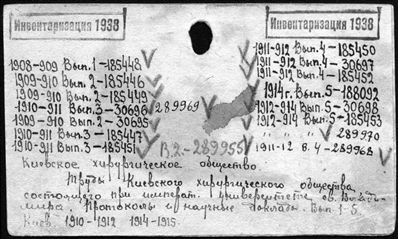 Инвентаризация 1938
Инвентаризация 1938
1908-909 Вып. 1-185448
1909-910 Вып. 2-185446
1909-910 Вып. 2-185449
1910-911 Вып. 3-30696 289969
1909-910 Вып. 2-30695
1910-911 Вып. 3-185447
1910-911 Вып. 3-185451
В.2.-289955
1911-912 Вып. 4-185450
1911-912 Вып. 4-30697
1911-912 Вып. 4-185452
1914 г. Вып. 5-188092
1912-914 Вып. 5-30698
1912-914 Вып. 5-185453
" " " 289970
1911-12 В. 4-289968
Киевское хирургическое общество.
Труды Киевского хирургического общества,
состоящего при императ. университете св. Влади-
мира. Протоколы и научные доклады. Вып. 1-5.
Киев. 1910-1912 1914-1915.